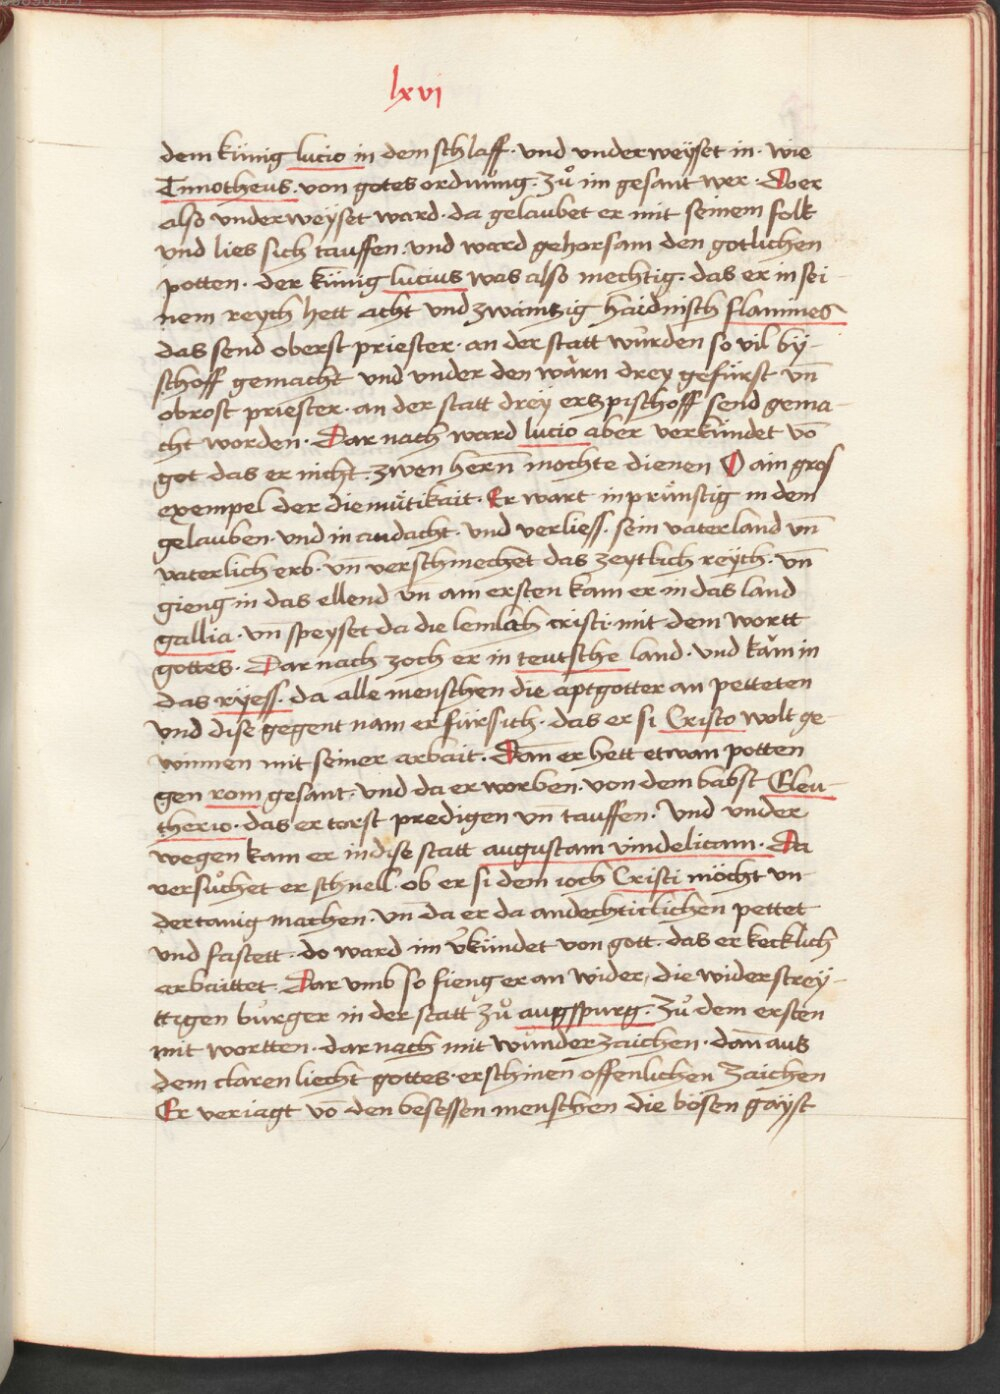 lxvi
dem künig lucio in dem schlaff · und underweÿset in · wie
Timotheus · von gotes ordnůng · zů im gesant wer · Do er
also underweÿset ward · da gelaubet er mit seinem folk
und lies sich tauffen · und ward gehorsam den gotlichen
potten · der künig lucius was also mechtig · das er in sei-
nem reych hett acht und zwaintzig haidnisch flamines
das send oberst priester · an der statt wurden so vil bÿ-
schoff gemacht und under den wārn drey gefürst vn̄
obrost priester · an der statt dreÿ ertzpischoff send gema-
cht worden · Dar nach ward lucio aber verkündet vō
got das er nicht · zwen hern̄ mochte dienen O ain gros
exempel der diemütikait · Er wart inprünstig in dem
gelauben · und in andacht · und verliess · sein vaterland vn̄
vaterlich erb · vn̄ verschmechet das zeytlich reÿch · vn̄
gieng in das ellend vn̄ am ersten kam er in das land
gallia · vn̄ speyset da die lemlach cristi · mit dem wortt
gottes · Dar nach zoch er in teutsche land · und kam in
das rÿess · da alle menschen die aptgotter an petteten
und dise gegent nam er für sich · das er si Cristo wolt ge-
winnen mit seiner arbait · Dan̄ er hett etwan potten
gen rom gesant · und da erworben · von dem babst Eleu-
therio · das er torst predigen vn̄ tauffen · Und under
wegen kam er in dise statt augustam vindelicam · Da
versůchet er schnell · ob er si dem ioch Cristi möcht un
dertanig machen · vn̄ da er da andechticlichen pettet
und fastett · do ward im v̄kündet von gott · das er kecklich
arbaittet · Dar vmb so fieng er an wider die widerstreÿ-
ttigen burger in der statt zů augspurg · Zů dem ersten
mit wortten · dar nach mit wunderzaichen · dan̄ aus
dem claren liecht gottes · erschinen offenlichen zaichen
Er veriagt vō den besessen menschen die bösen gaÿst